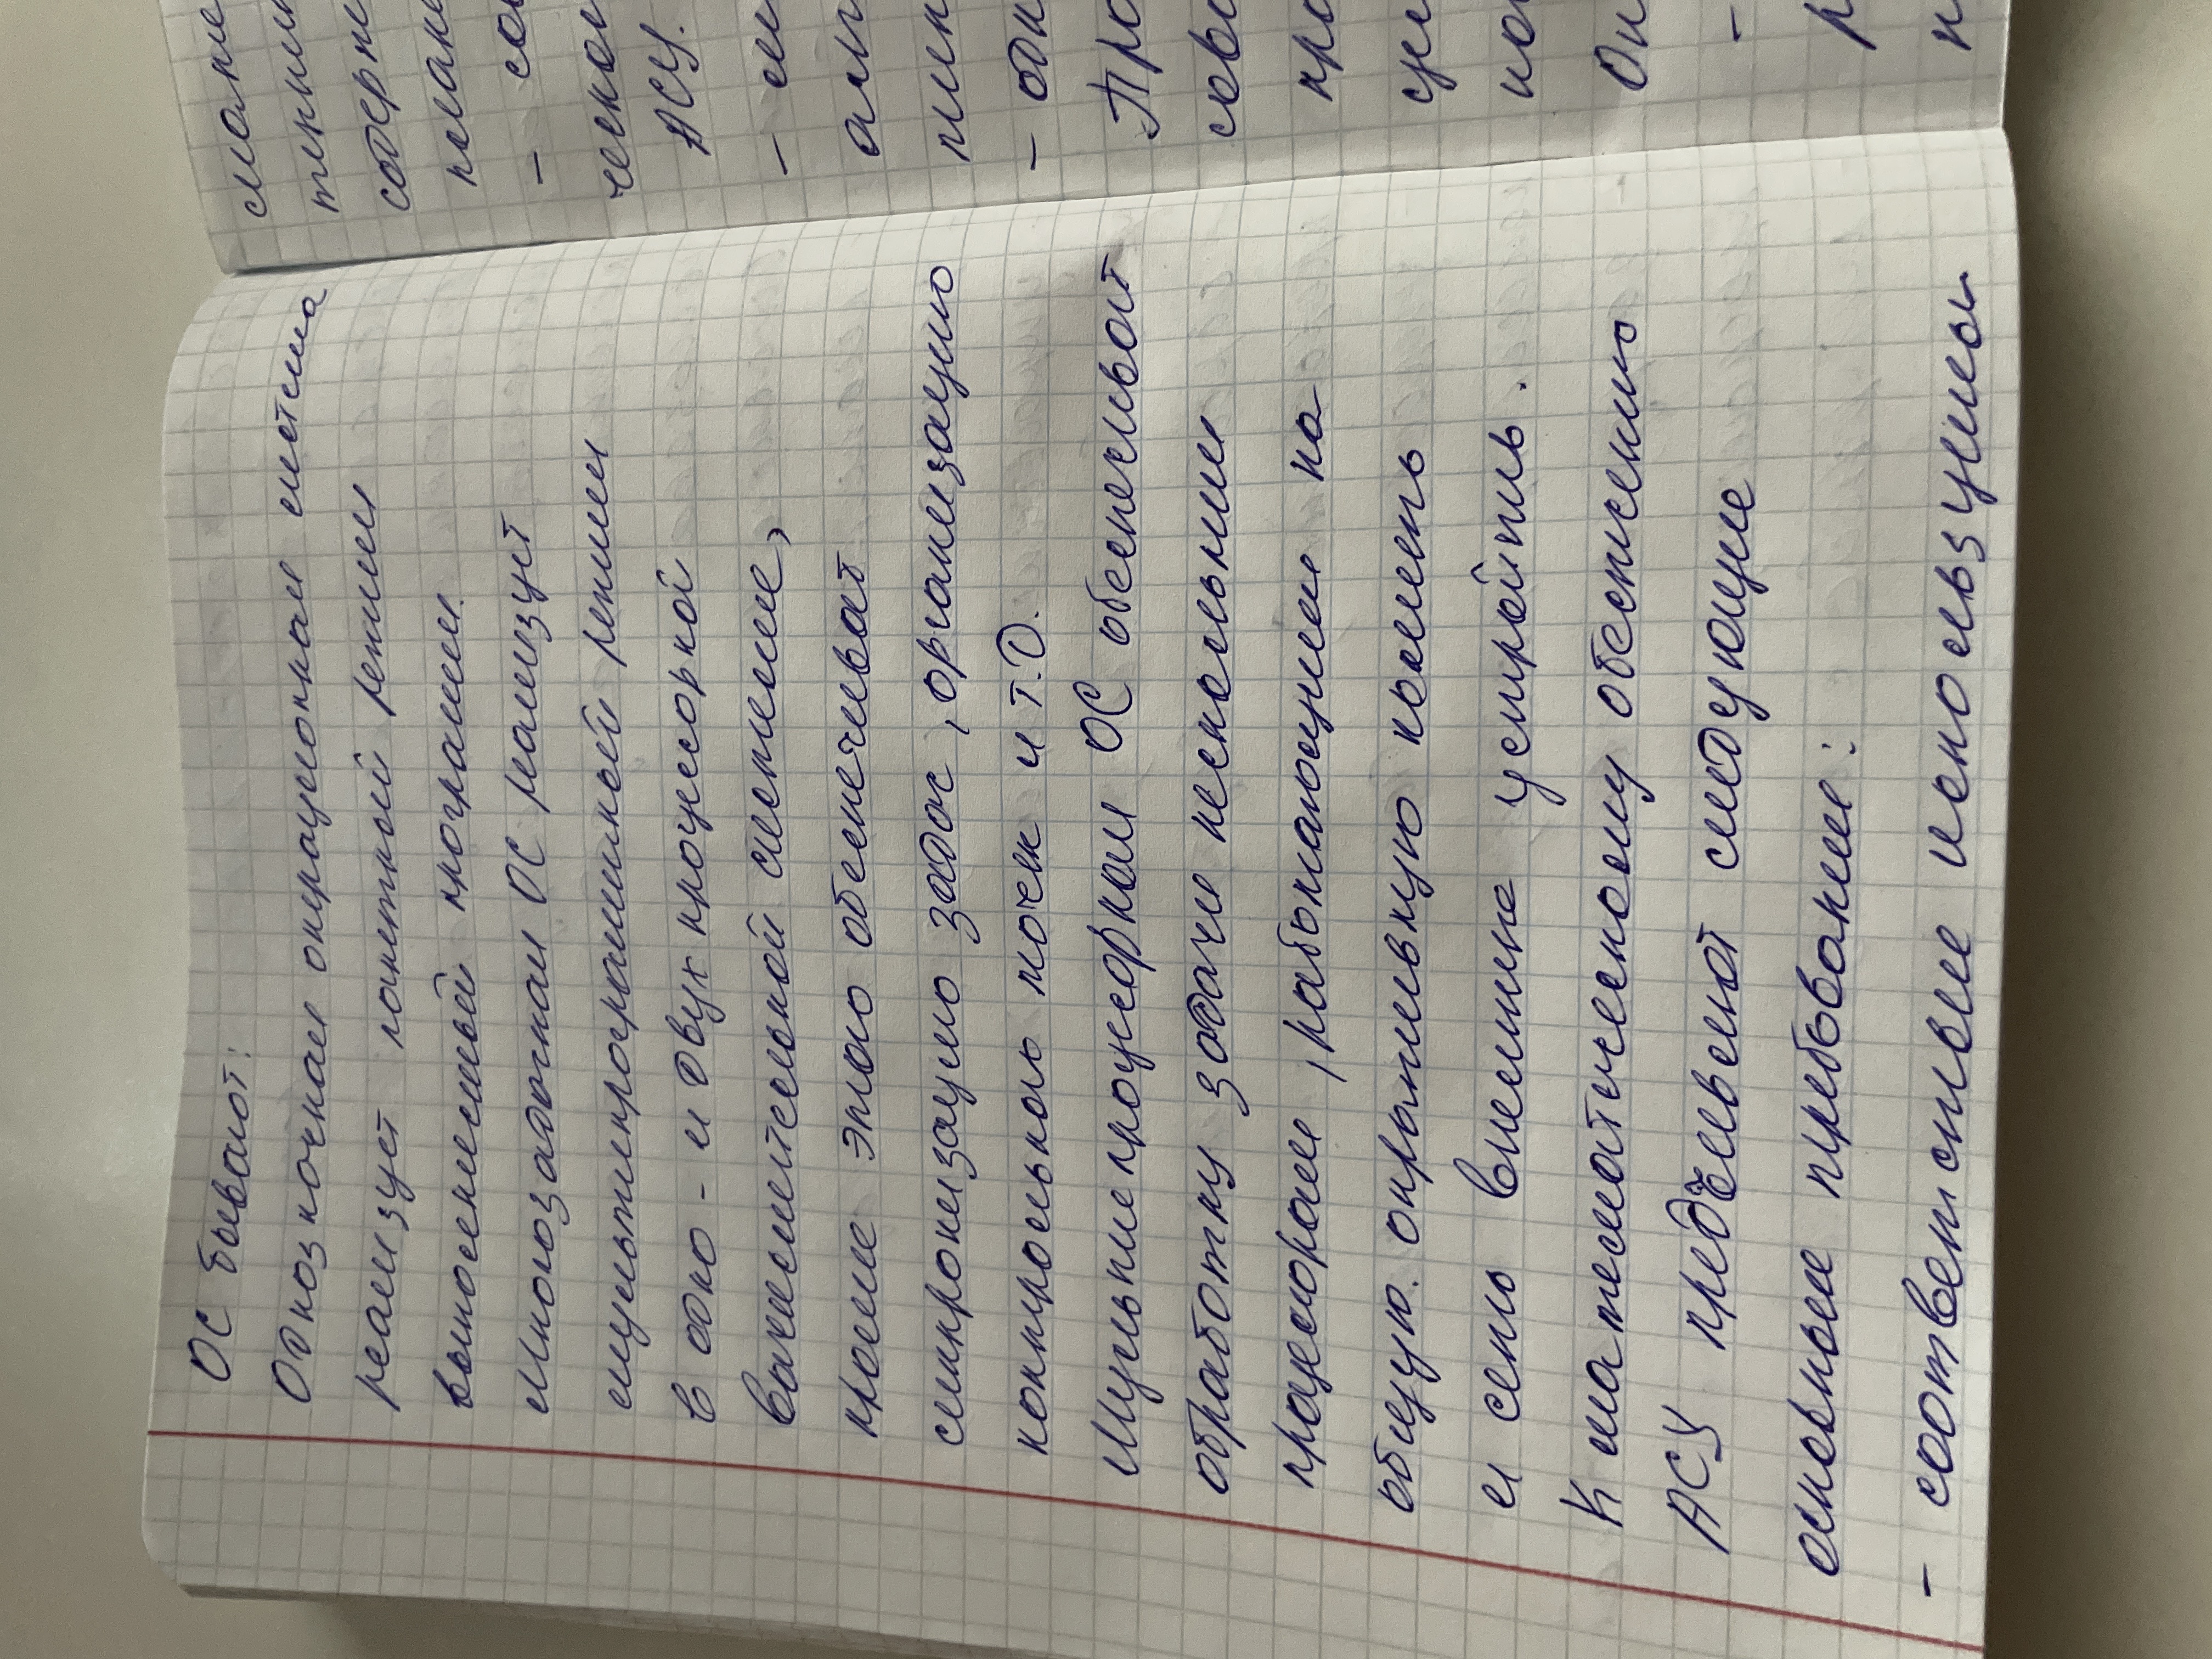 ОС бывают:
Однозночная операционная система
реализует пакетной режим
выполненимый програмы.
Многозадачная ОС реализует
мультипрограмимный режим
в одно - и двух процессорной
вычислительной системе,
кроме этого обеспечивает
синхронизацию задач, организацию
контрольных точек и т.д.
Мультипроцесорная ОС обеспечивает
обработку задачи несколькими
процесорами, работающими на
общую оперативную память
и сеть внешних устройств.
К математическому обеспечению
АСУ предъевляют следующие
основные требования:
- соответствие используемы
сложе
тими
содерж
- со
АСУ.
-
- одн
Про
сов